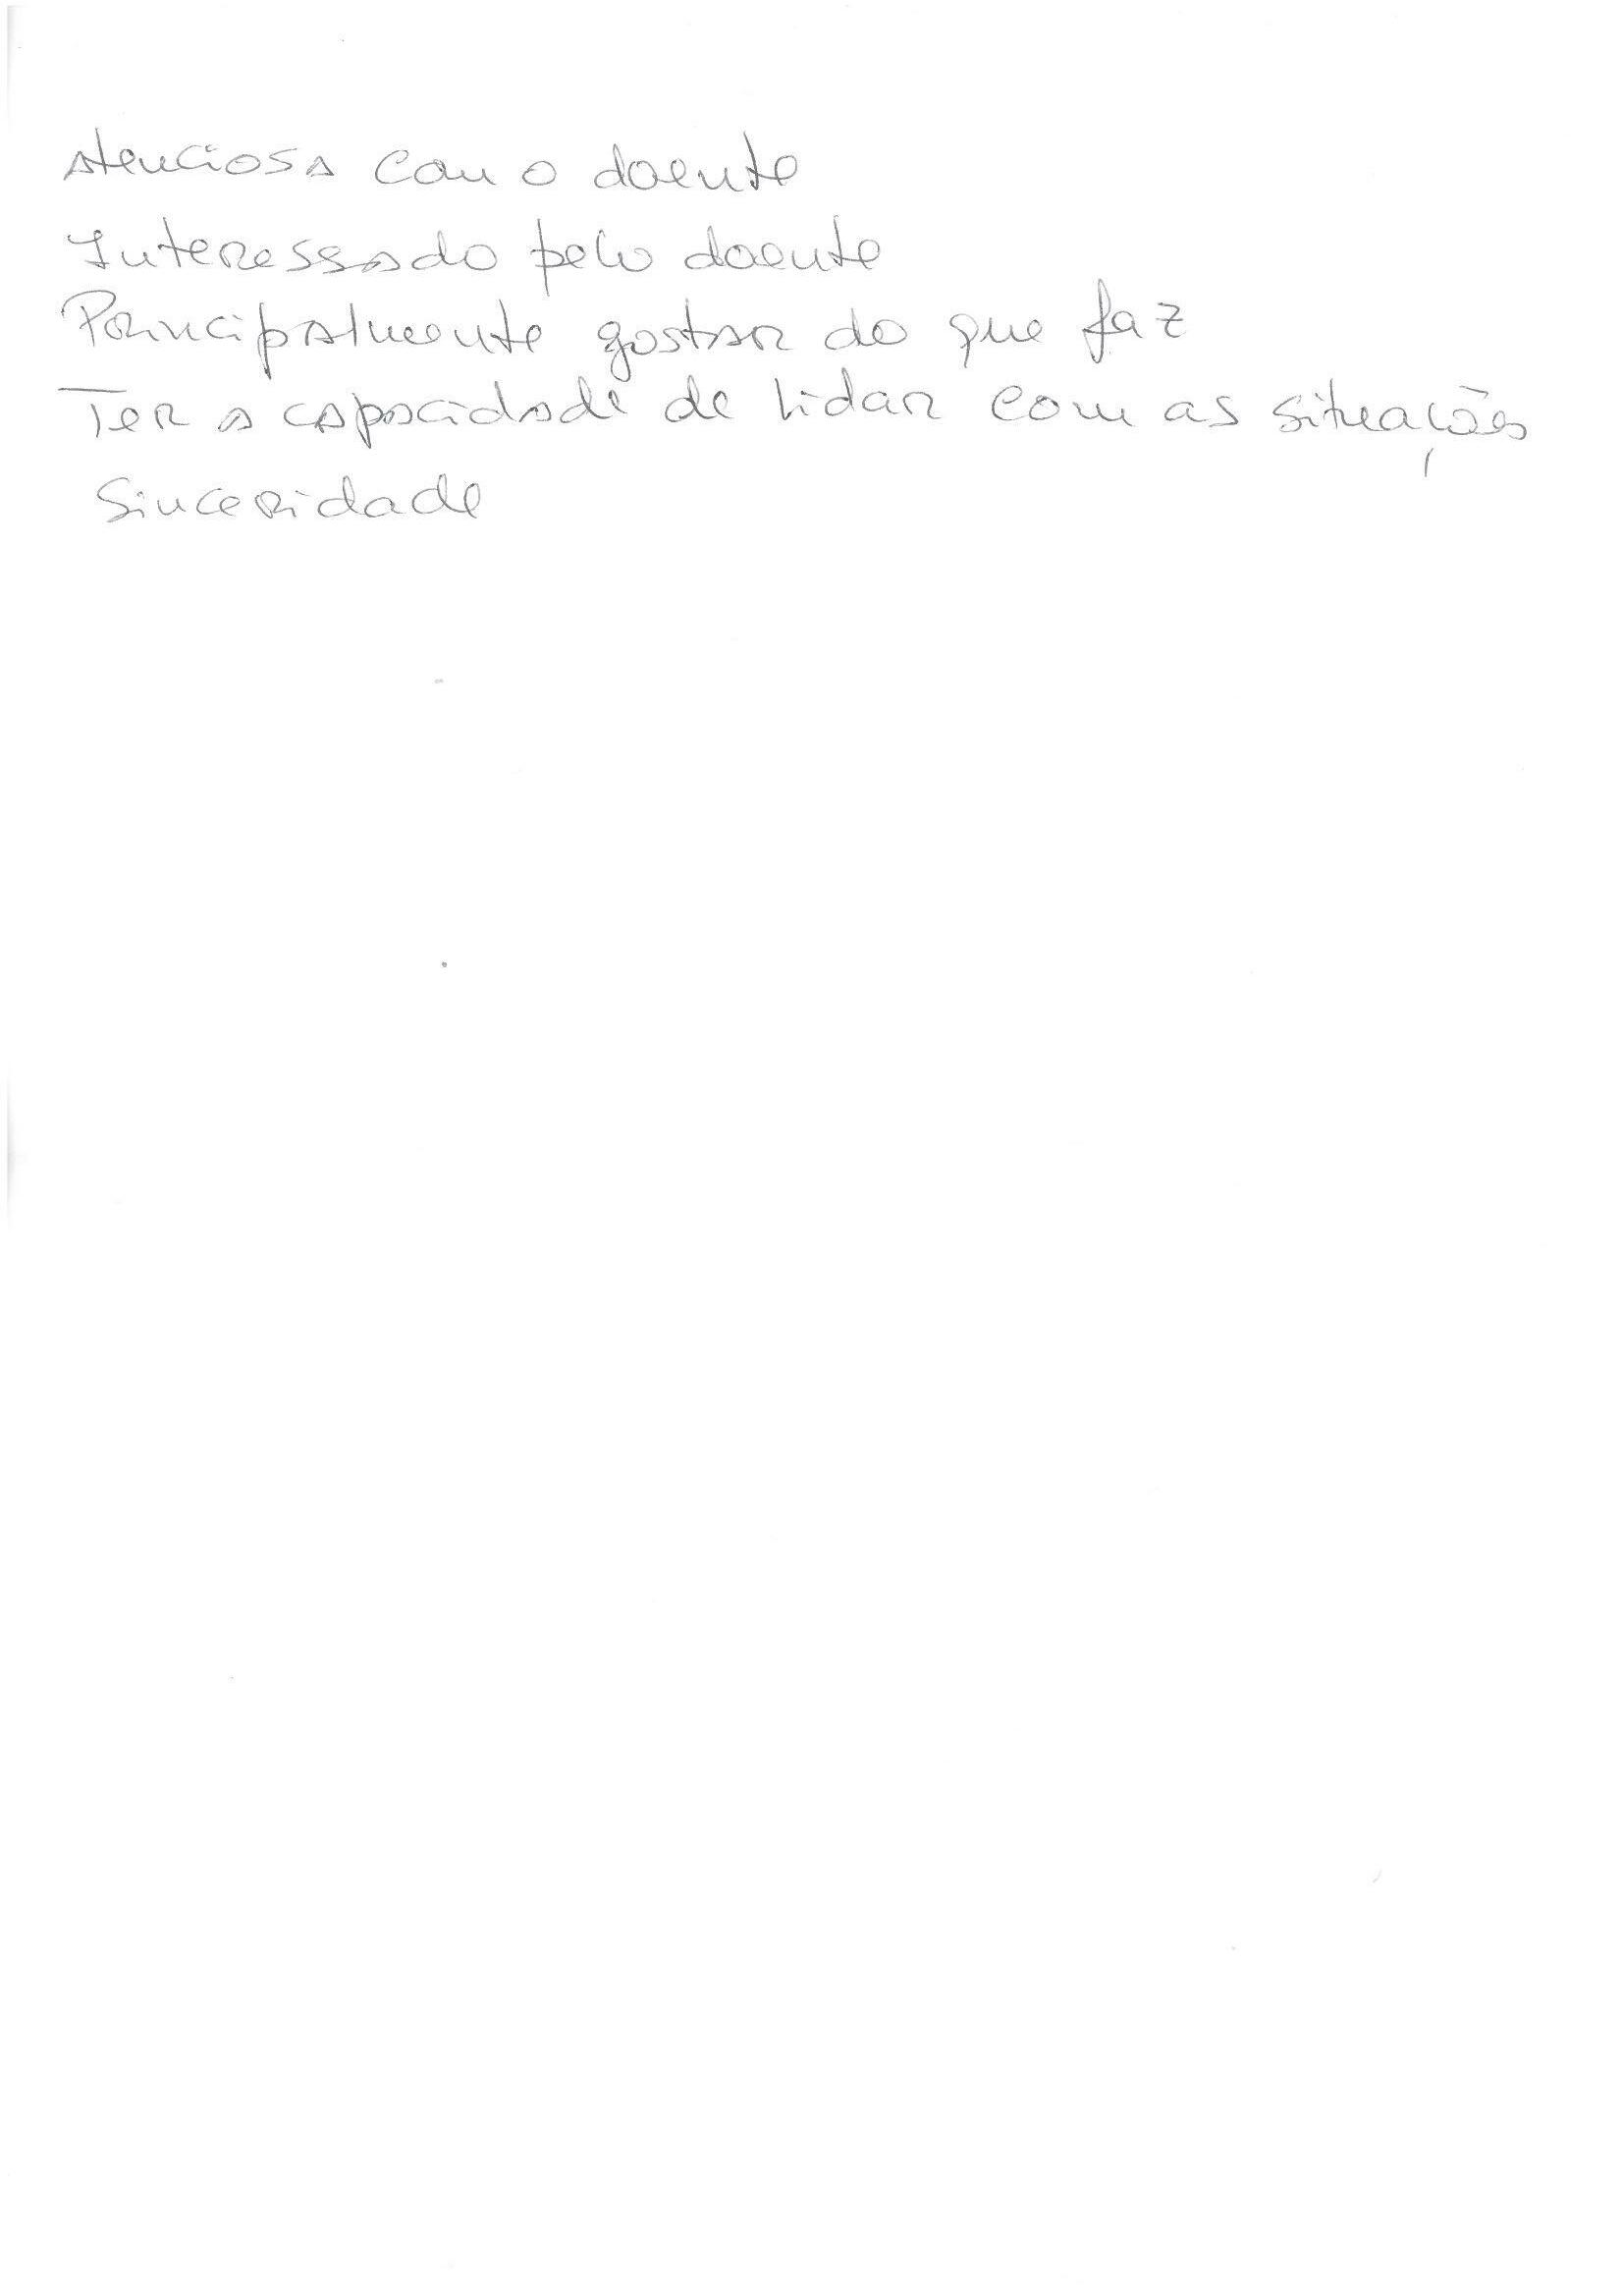 Atenciosa com o doente
Interessado pelo doente
Principalmente gostar do que faz
Ter a capacidade de lidar com as situações
Sinceridade